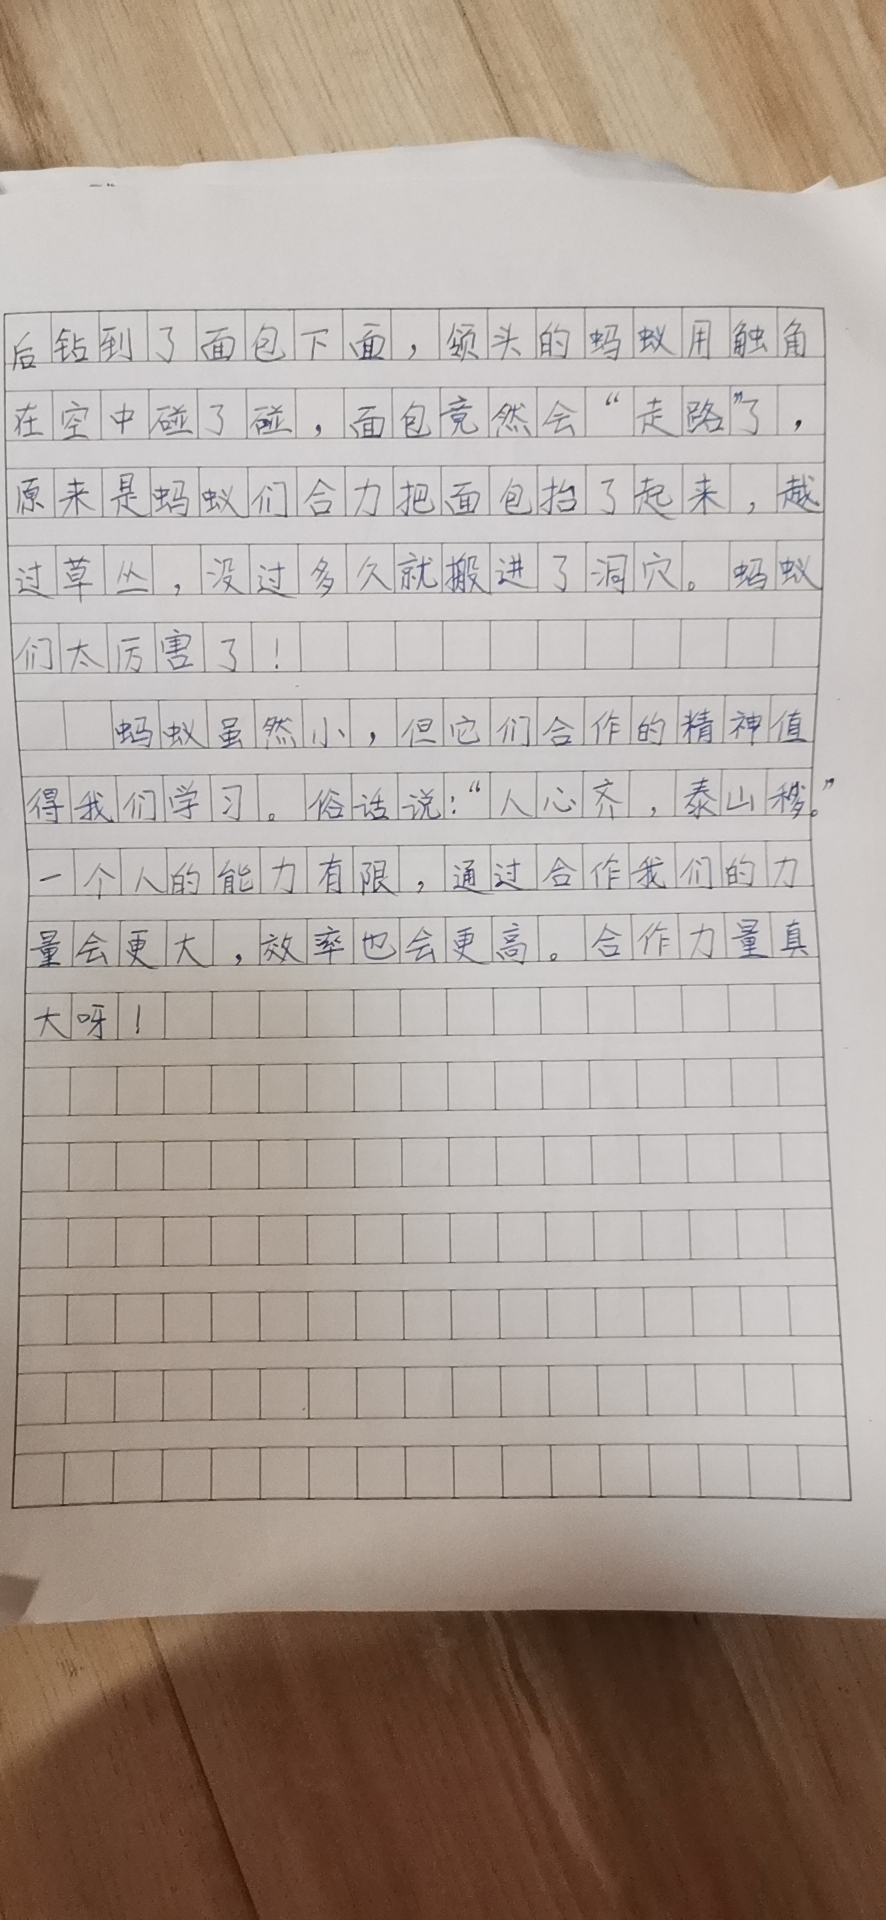 后钻到了面包下面，领头的蚂蚁用触角
在空中碰了碰，面包竟然会“走路”了，
原来是蚂蚁们合力把面包抬了起来，越
过草丛，没过多久就搬进了洞穴。蚂蚁
们太厉害了！
蚂蚁虽然小，但它们合作的精神值
得我们学习。俗话说：“人心齐，泰山移。”
一个人的能力有限，通过合作我们的力
量会更大，效率也会更高。合作力量真
大呀！